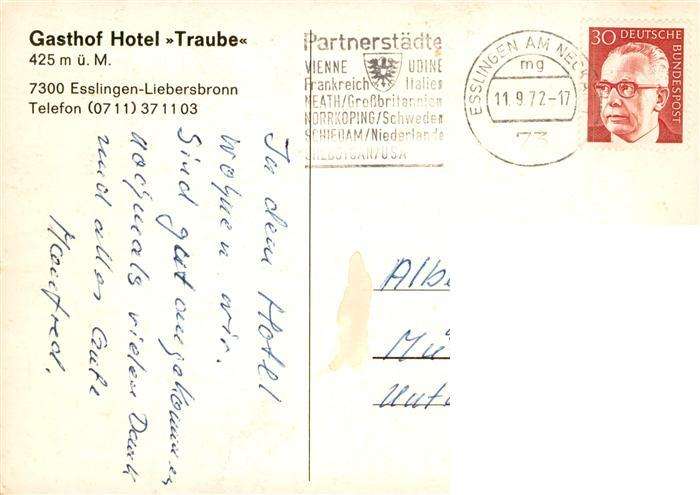 Gasthof Hotel »Traube«
425 m ü. M.
7300 Esslingen-Liebersbronn
Telefon (07 11) 37 11 03
Partnerstädte
VIENNE UDINE
Frankreich Italien
NEATH/Großbritannien
NORRKÖPING/Schweden
SCHIEDAM/Niederlande
SHEBOYGAN/USA
ESSLINGEN AM NECKA
mg
11.9.72-17
73
30 DEUTSCHE
BUNDESPOST
In dem Hotel
wohnen wir.
Sind gut angekommen
nochmals vielen Dank
und alles Gute
Manfred.
Albe
Mü
Unte